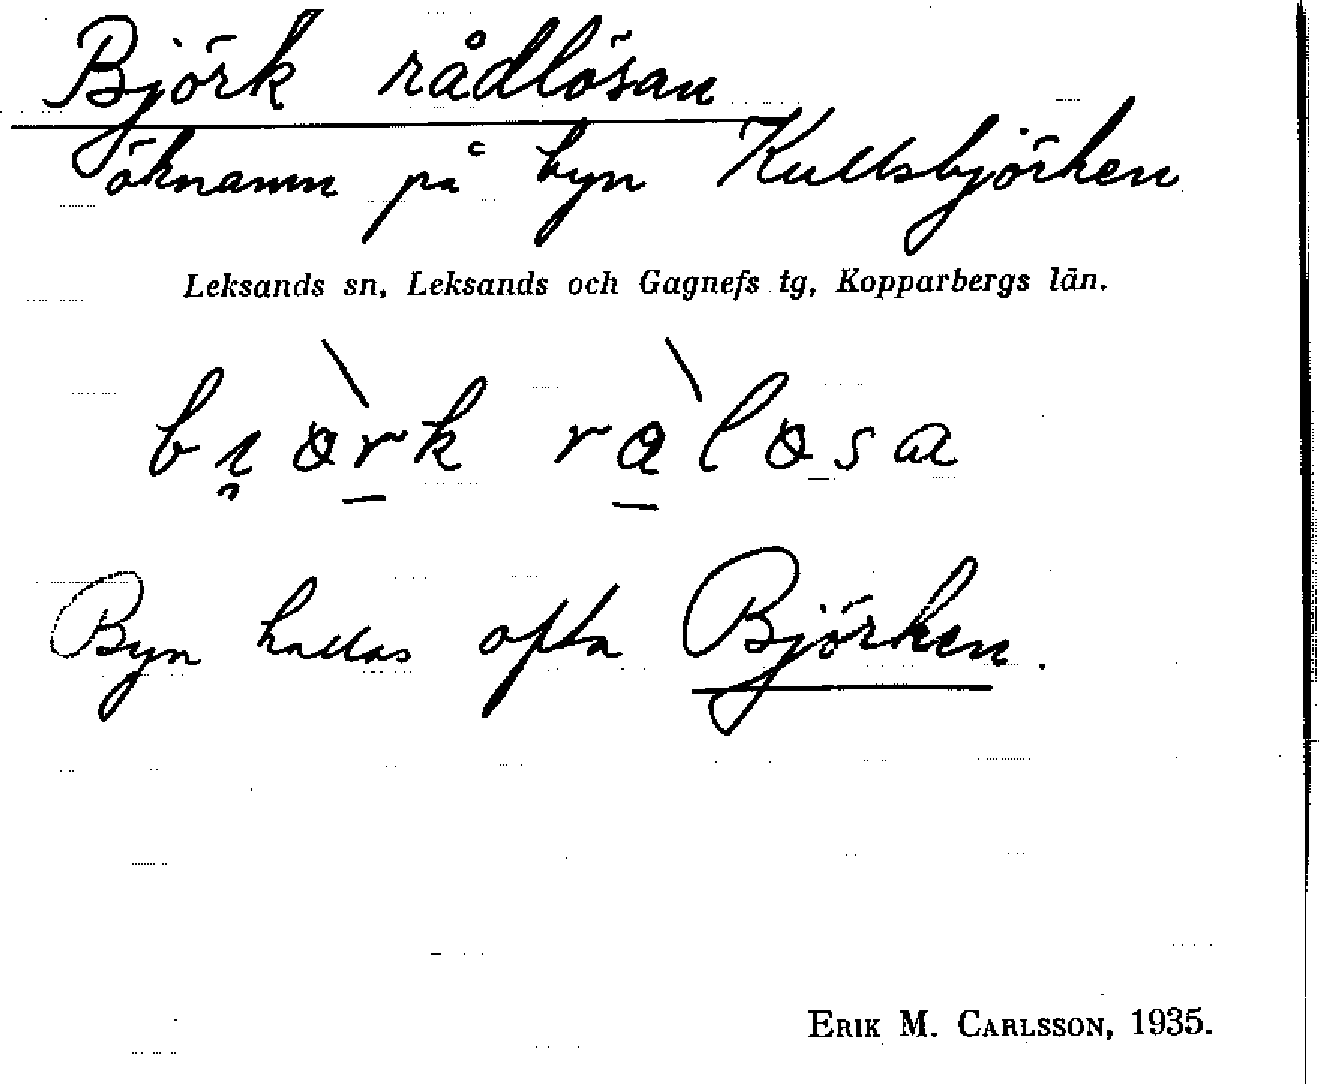 Björk rådlösan
öknamn på byn Kullsbjörken
Leksands sn, Leksands och Gagnefs tg, Kopparbergs län.
Byn kallas ofta Björken.
ERIK M. CARLSSON, 1935.